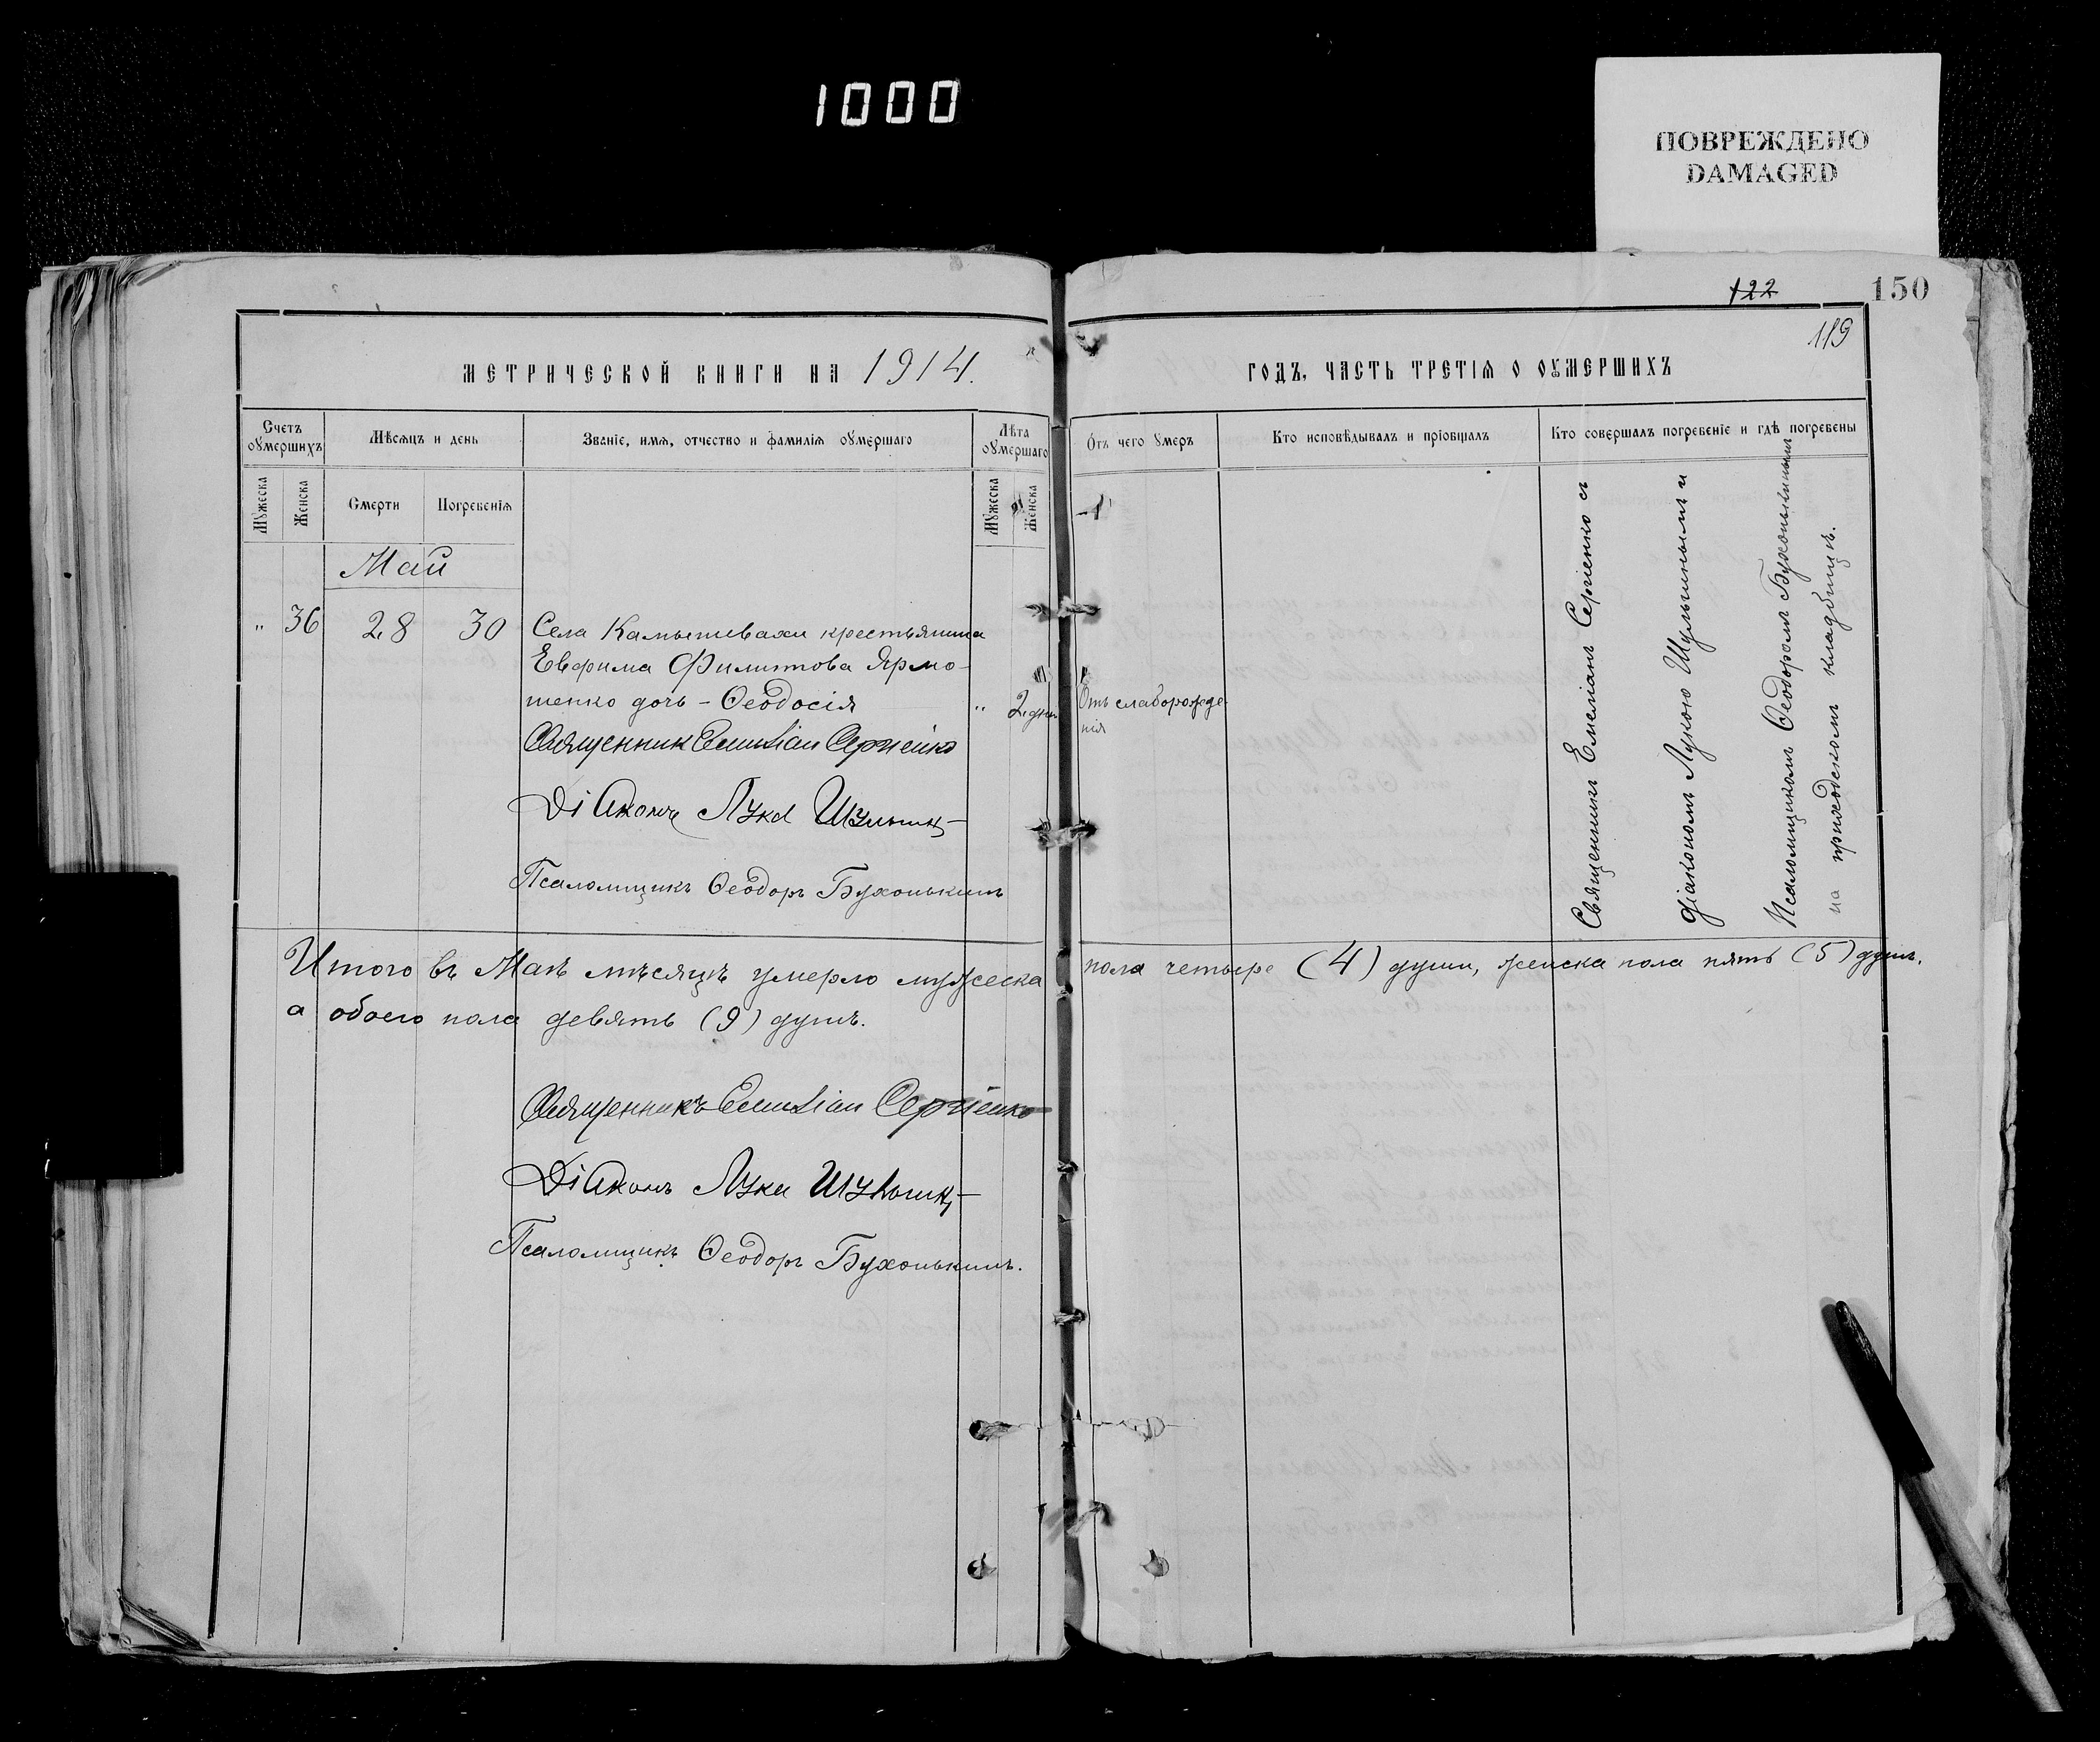 1000
ПОВРЕЖДЕНО
DAMAGED
122
150
119
МЕТРИЧЕСКОЙ КНИГИ НА 1914.
ГОДЪ, ЧАСТЬ ТРЕТІѦ О ОУМЕРШИХЪ
Счетъ оумершихъ
Мѣсѧцъ и день
Званіе, имѧ, отчество и фамиліѧ оумершаго
Лѣта оумершаго
Отъ чего умеръ
Кто исповѣдывалъ и пріобщалъ
Кто совершалъ погребеніе и гдѣ погребены
Мужеска
Женска
Смерти
Погребеніѧ
Мужеска
Женска
Май
" 36 28 30 Села Камышевахи крестьянина
Евфима Филиппова Ярмо-
шенко дочь - Ѳеодосія " 2 дня Отъ слаборожде
нія
Священник Емиліан Сергіенко
Діаконъ Лука Шульгин
Псаломщикъ Ѳеодоръ Бухонькинъ
Священникъ Емеліанъ Сергіенко съ
діакономъ Лукою Шульгинымъ и
Псаломщикомъ Ѳеодоромъ Бухонькинымъ
на приходскомъ кладбищѣ.
Итого въ Маѣ мѣсяцѣ умерло мужеска пола четыре (4) души, женска пола пять (5) душъ,
а обоего пола девять (9) душъ.
Священникъ Емиліан Сергіенко
Діаконъ Лука Шульгин
Псаломщикъ Ѳеодоръ Бухонькинъ.